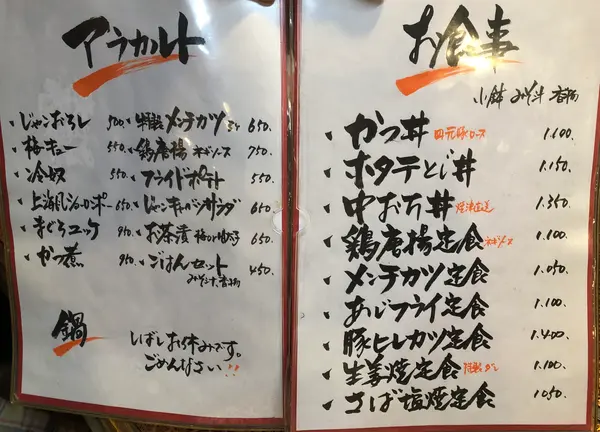 アラカルト
じゃこおろし 500
梅キュー 550.
冷奴 550.
上海風ショーロンポー 650.
まぐろユッケ 950.
かつ煮 950.
特製メンチカツ 650.
鶏唐揚 ネギソース 750.
フライドポテト 550.
じゃこキャベツサラダ 650
お茶漬 650.
ごはんセット 450.
みそ汁、香物
鍋
しばしお休みです。
ごめんなさい!!
お食事
小鉢 みそ汁 香物
かつ丼 四元豚ロース 1.100.
ホタテとじ丼 1.150.
中おち丼 焼津直送 1.350.
鶏唐揚定食 ネギソース 1.100.
メンチカツ定食 1.050.
あじフライ定食 1.100.
豚ヒレカツ定食 1.400.
生姜焼定食 特製ダレ 1.100.
さば塩焼定食 1050.